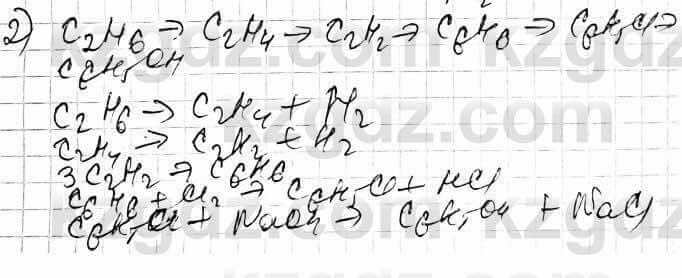 2) C2H6 → C2H4 → C2H2 → C6H6 → C6H5Cl →
C6H5OH
C2H6 → C2H4 + H2
C2H4 → C2H2 + H2
3C2H2 → C6H6
C6H6 + Cl2 → C6H5Cl + HCl
C6H5Cl + NaOH → C6H5OH + NaCl